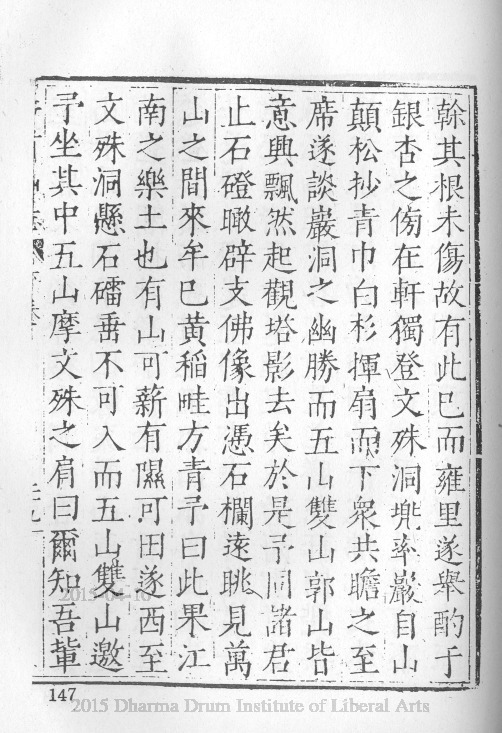 榦其根未傷故有此已而雍里遂舉酌于
銀杏之傍在軒獨登文殊洞兠率巖自山
顛松抄青巾白杉揮扇而下衆共瞻之至
席遂談巖洞之幽勝而五山雙山郭山皆
意興飄然起觀塔影去矣於是予同諸君
止石磴瞰辟支佛像出憑石欄遠眺見萬
山之間來牟已黃稻畦方青予曰此果江
南之樂土也有山可薪有隰可田遂西至
文殊洞懸石礌垂不可入而五山雙山邀
予坐其中五山摩文殊之肩曰爾知吾輩
147
2015 Dharma Drum Institute of Liberal Arts